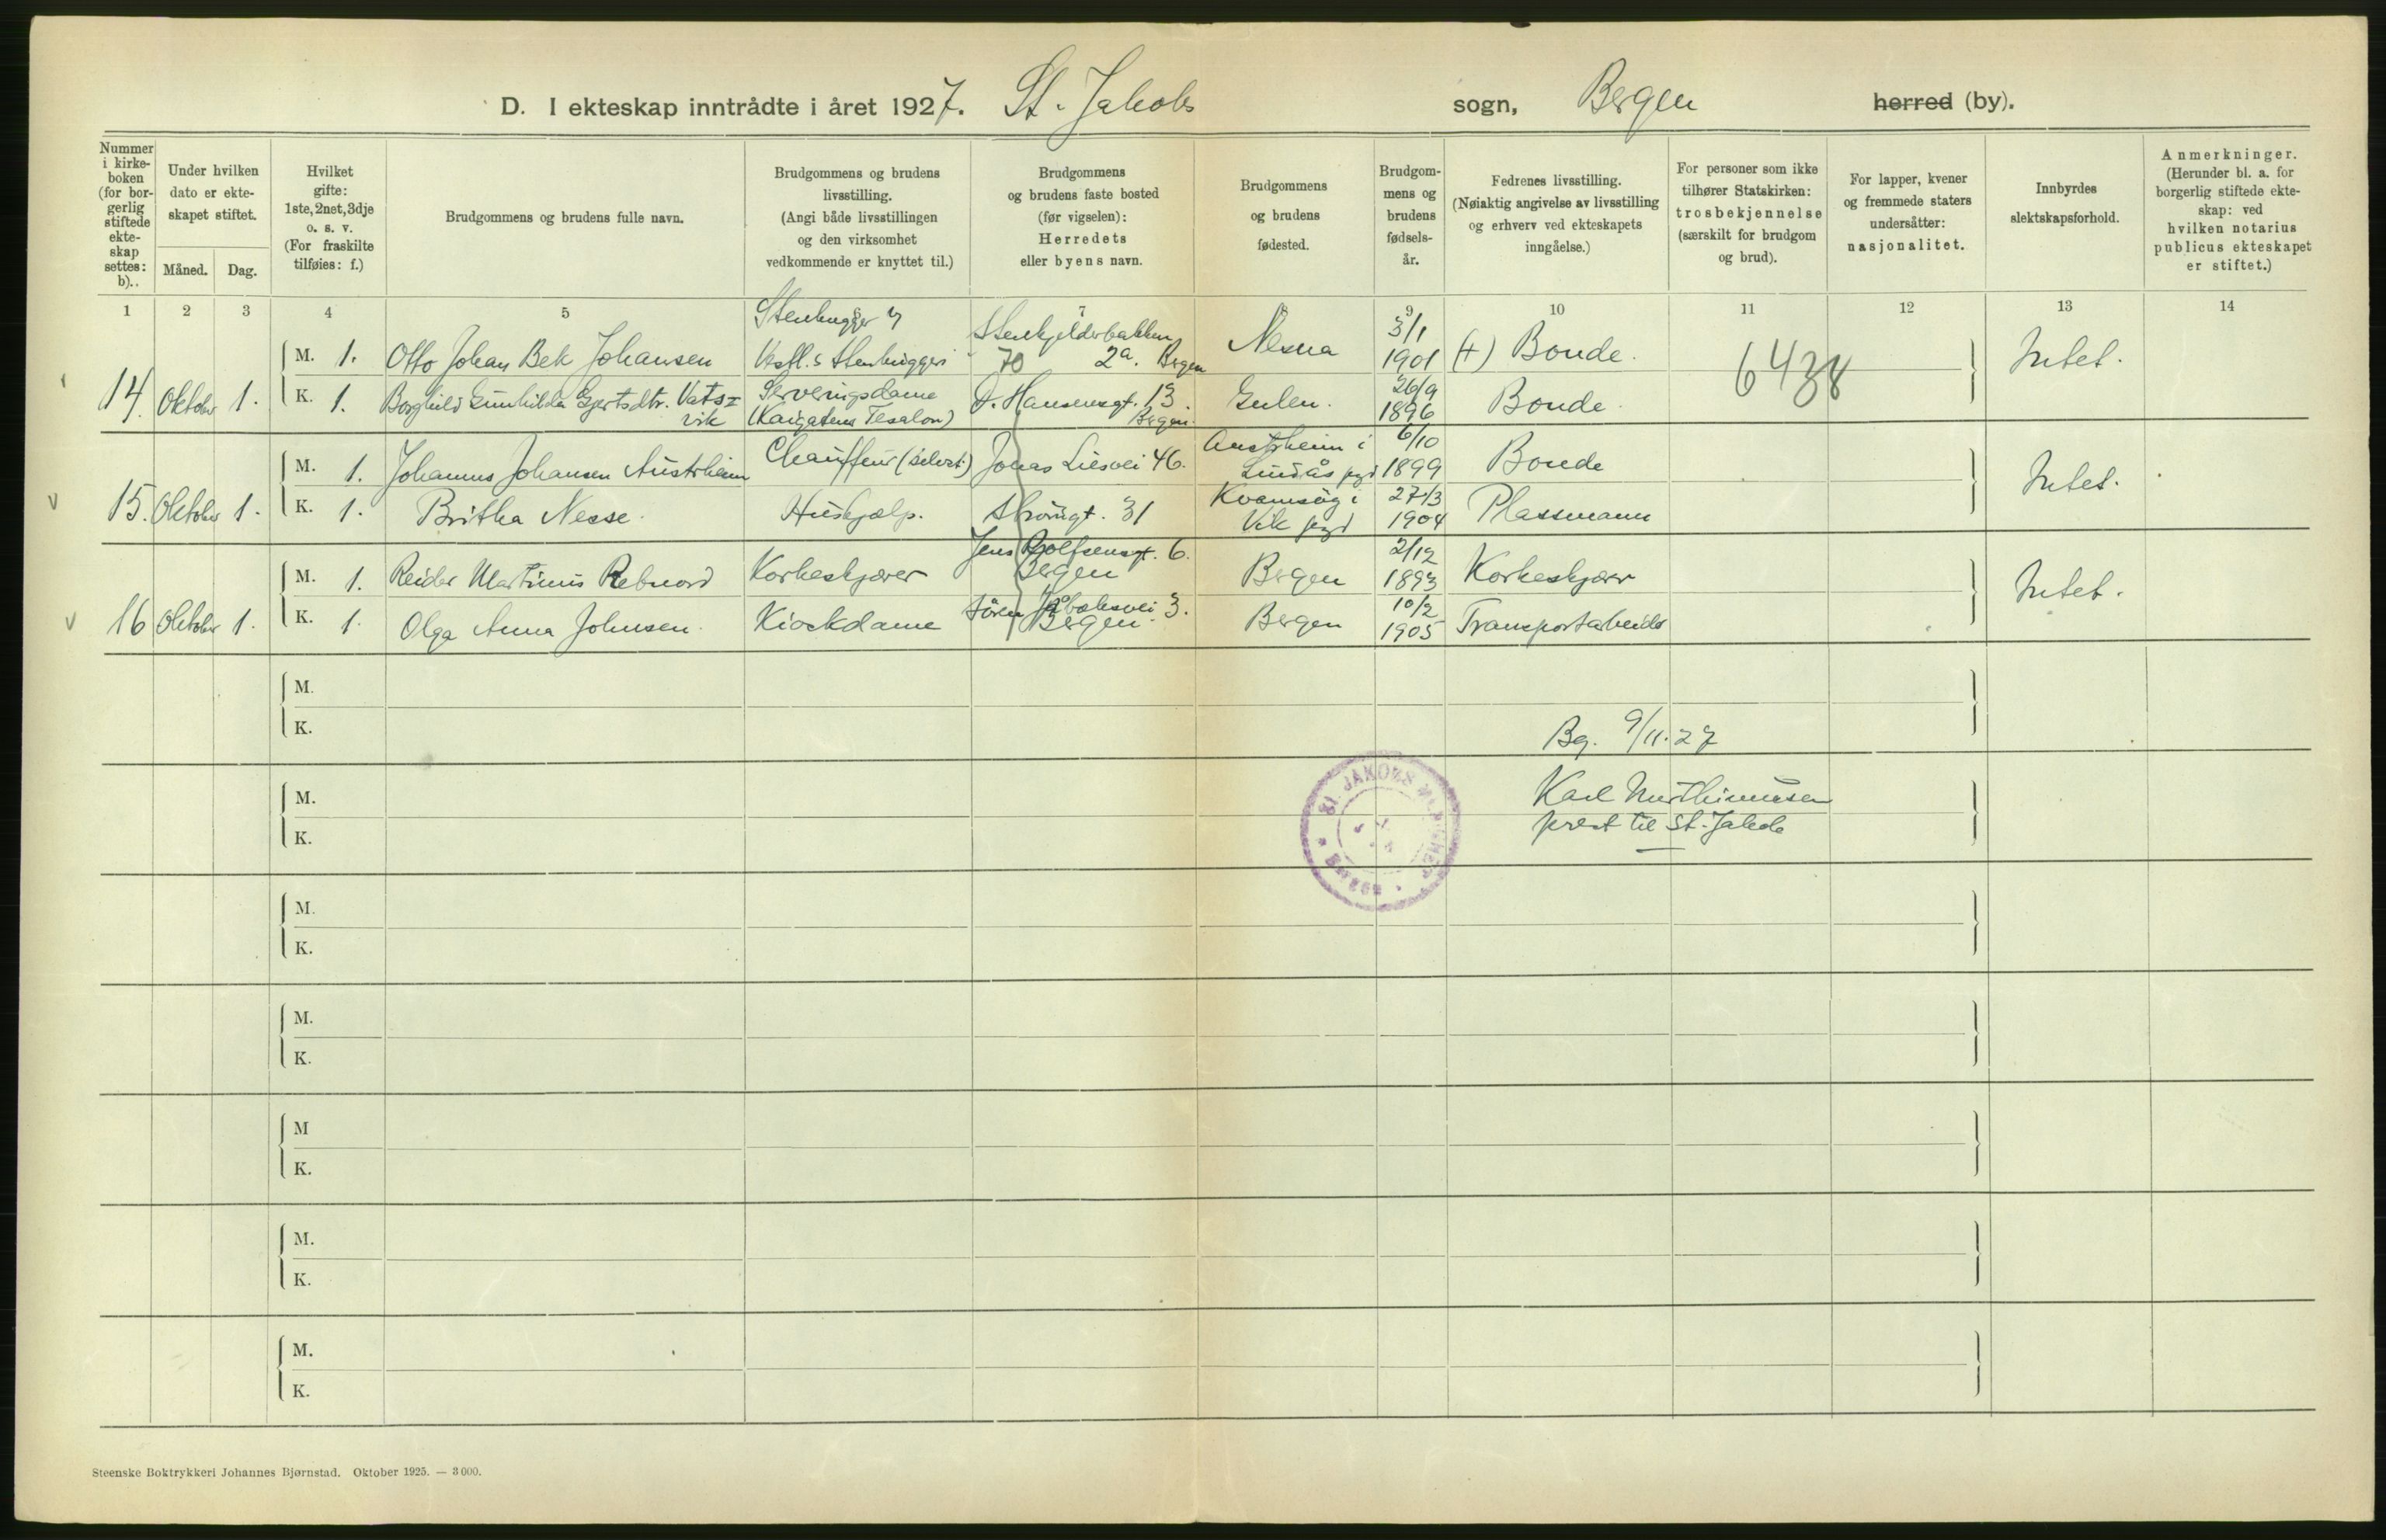 D. I ekteskap inntrådte i året 1927. St. Jakobs sogn, Bergen herred (by).
Nummer i kirke-boken (for bor-gerlig stiftede ekte-skap settes: b)..
Under hvilken dato er ekte-skapet stiftet.
Måned. Dag.
Hvilket gifte: 1ste, 2net, 3dje o. s. v. (For fraskilte tilføies: f.)
Brudgommens og brudens fulle navn.
Brudgommens og brudens livsstilling. (Angi både livsstillingen og den virksomhet vedkommende er knyttet til.)
Brudgommens og brudens faste bosted (før vigselen): Herredets eller byens navn.
Brudgommens og brudens fødested.
Brudgom-mens og brudens fødsels-år.
Fedrenes livsstilling. (Nøiaktig angivelse av livsstilling og erhverv ved ekteskapets inngåelse.)
For personer som ikke tilhører Statskirken: trosbekjennelse (særskilt for brudgom og brud).
For lapper, kvener og fremmede staters undersåtter: nasjonalitet.
Innbyrdes slektskapsforhold.
Anmerkninger. (Herunder bl. a. for borgerlig stiftede ekte-skap: ved hvilken notarius publicus ekteskapet er stiftet.)
1 2 3 4 5 6 7 8 9 10 11 12 13 14
14. Oktober 1.
M. 1. Otto Johan Bek Johansen Stenhugger v Vestl.s Stenhuggeri Stenkjelderbakken 2a. Bergen Nesna 3/1 1901 (+) Bonde. 6438 Intet.
K. 1. Borghild Gunhilda Gjertsdtr. Vatsvik Serveringsdame (Kaigatens Tesalon) D. Hansensgt. 13 Bergen. Gulen. 26/9 1896 Bonde
15. Oktober 1.
M. 1. Johannes Johansen Austrheim Chauffeur (selvst.) Jonas Liesvei 46. Austrheim i Lindås pgd 6/10 1899 Bonde Intet.
K. 1. Britha Nesse. Hushjælp. Strømgt. 31 Kvamsøy i Vik pgd 27/3 1904 Plassmann
16 Oktober 1.
M. 1. Reidar Martinus Rebnord Korkeskjærer Jens Rolfsensgt. 6. Bergen Bergen 2/12 1893 Korkeskjærer Intet.
K. 1. Olga Anna Johnsen. Kioskdame Sören Jaabæksvei 3. Bergen. Bergen 10/2 1905 Transportarbeider
M.
K.
Bg. 9/11.27
M. Karl
K. prest til St. Jakob
ST. JAKOBS BERGEN
M.
K.
M.
K.
M
K.
M.
K.
M.
K.
Steenske Boktrykkeri Johannes Bjørnstad. Oktober 1925. — 3000.